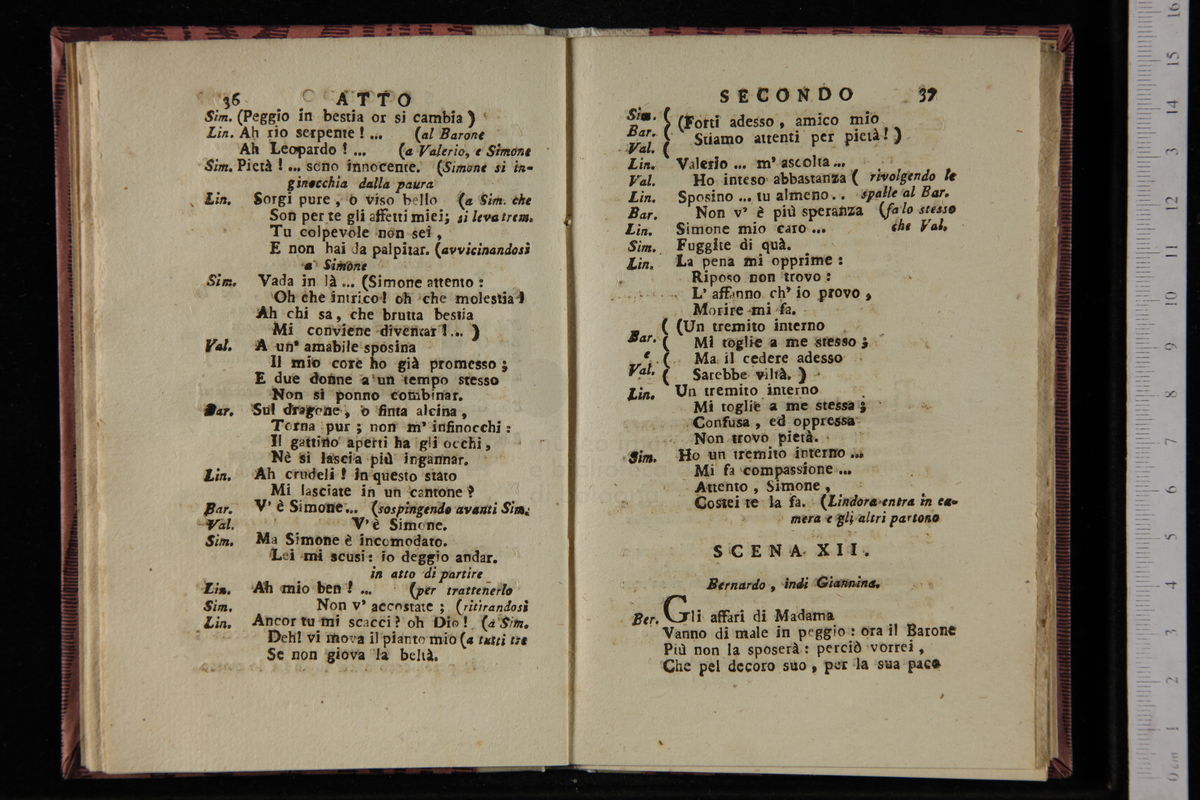 36 ATTO
Sim. (Peggio in bestia or si cambia)
Lin. Ah rio serpente! ... (al Barone
Ah Leopardo! ... (a Valerio, e Simone
Sim. Pietà! ... sono innocente. (Simone si in-
ginocchia dalla paura
Lin. Sorgi pure, o viso bello (a Sim. che
Son per te gli affetti miei; si leva trem.
Tu colpevole non sei,
E non hai da palpitar. (avvicinandosi
a Simone
Sim. Vada in là ... (Simone attento:
Oh che intrico! oh che molestia!
Ah chi sa, che brutta bestia
Mi conviene diventar!... )
Val. A un' amabile sposina
Il mio core ho già promesso;
E due donne a un tempo stesso
Non si ponno combinar.
Bar. Sul dragone, o finta alcina,
Torna pur; non m' infinocchi:
Il gattino aperti ha gli occhi,
Nè si lascia più ingannar.
Lin. Ah crudeli! in questo stato
Mi lasciate in un cantone?
Bar. V' è Simone... (sospingendo avanti Sim.
Val. V' è Simone.
Sim. Ma Simone è incomodato.
Lei mi scusi: io deggio andar.
in atto di partire
Lin. Ah mio ben! ... (per trattenerlo
Sim. Non v' accostate; (ritirandosi
Lin. Ancor tu mi scacci? oh Dio! (a Sim.
Deh! vi mova il pianto mio (a tutti tre
Se non giova la beltà.
SECONDO 37
Sim. (
Bar. ( (Forti adesso, amico mio
Val. ( Stiamo attenti per pietà!)
Lin. Valerio ... m' ascolta ...
Val. Ho inteso abbastanza ( rivolgendo le
Lin. Sposino ... tu almeno.. spalle al Bar.
Bar. Non v' è più speranza (fa lo stesso
Lin. Simone mio caro ... che Val.
Sim. Fuggite di quà.
Lin. La pena mi opprime:
Riposo non trovo:
L' affanno ch' io provo,
Morire mi fa.
( (Un tremito interno
Bar. ( Mi toglie a me stesso;
e ( Ma il cedere adesso
Val. ( Sarebbe viltà. )
Lin. Un tremito interno
Mi toglie a me stessa;
Confusa, ed oppressa
Non trovo pietà.
Sim. Ho un tremito interno ...
Mi fa compassione ...
Attento, Simone,
Costei te la fa. (Lindora entra in ca-
mera e gli altri partono
SCENA XII.
Bernardo, indi Giannina.
Ber. Gli affari di Madama
Vanno di male in peggio: ora il Barone
Più non la sposerà: perciò vorrei,
Che pel decoro suo, per la sua pace